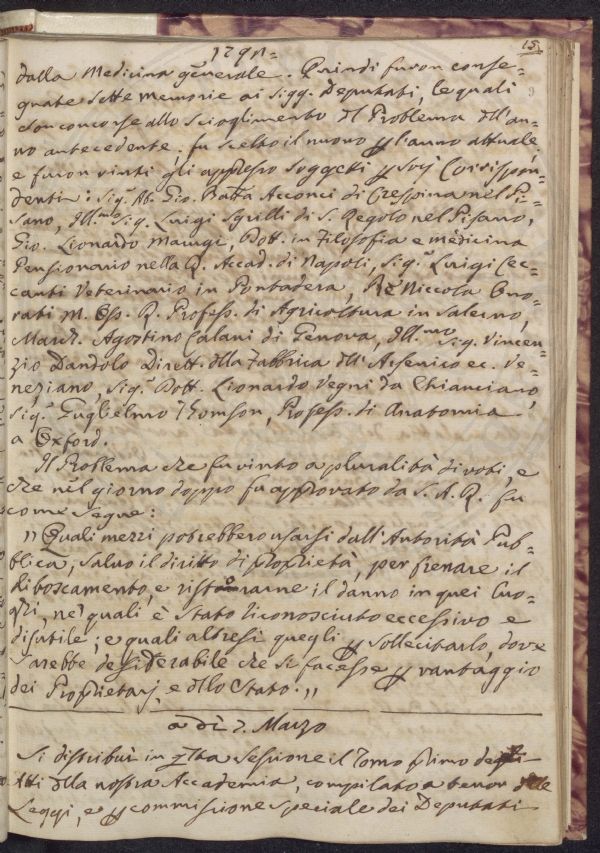 15
1791=
dalla Medicina generale. Quindi furon conse=
gnate sette memorie ai Sigg. Deputati, le quali
concorse allo scioglimento del Problema dell'an=
no antecedente; fu scelto il nuovo p l'anno attuale,
e furon vinti gli appresso Soggetti p socj Corrispon=
denti: Sig. Ab. Gio. Batta Acconci di Crespina nel Pi=
sano, Ill.mo Sig. Luigi Sgrilli di S. Regolo nel Pisano,
Gio. Lionardo Marugi, Dott. in Filosofia e medicina
Pensionario nella R. Accad. di Napoli, Sig.r Luigi Cec=
canti Veterinario in Pontadera, Niccola Ono=
rati M. Oss. R. Profess. di Agricoltura in Salerno,
March. Agostino Salani di Genova, Ill.mo Sig. Vincen=
zio Dandolo Dirett. della Fabbrica dell'Arsenico ec. Ve=
neziano, Sig.r Dott. Lionardo Vegni da Chianciano,
Sig.r Guglielmo Thomson, Profess. di Anatomia
a Oxford.
Il Problema che fu vinto a pluralità di voti, e
che nel giorno doppo fu approvato da S. A. R. fu
come segue:
" Quali mezzi potrebbero usarsi dall'Autorità Pub=
blica, salvo il diritto di proprietà, per frenare il
diboscamento, e ristorarne il danno in quei Luo=
ghi, ne' quali è stato riconosciuto eccessivo e
disutile; e quali altresì quegli p sollecitarlo, dove
sarebbe desiderabile che si facesse p vantaggio
dei Proprietarj, e dello Stato. "
a dì 2. Marzo
Si distribuì in questa sessione il Tomo primo degli
Atti della nostra Accademia, compilato a tenor delle
Leggi, e p commissione speciale dei Deputati